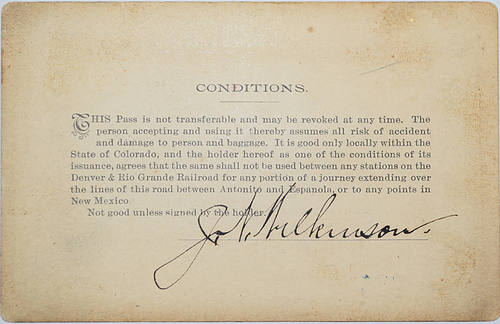 CONDITIONS.
THIS Pass is not transferable and may be revoked at any time. The
person accepting and using it thereby assumes all risk of accident
and damage to person and baggage. It is good only locally within the
State of Colorado, and the holder hereof as one of the conditions of its
issuance, agrees that the same shall not be used between any stations on the
Denver & Rio Grande Railroad for any portion of a journey extending over
the lines of this road between Antonito and Espanola, or to any points in
New Mexico
Not good unless signed by the holder.
J. N. Wilkinson.